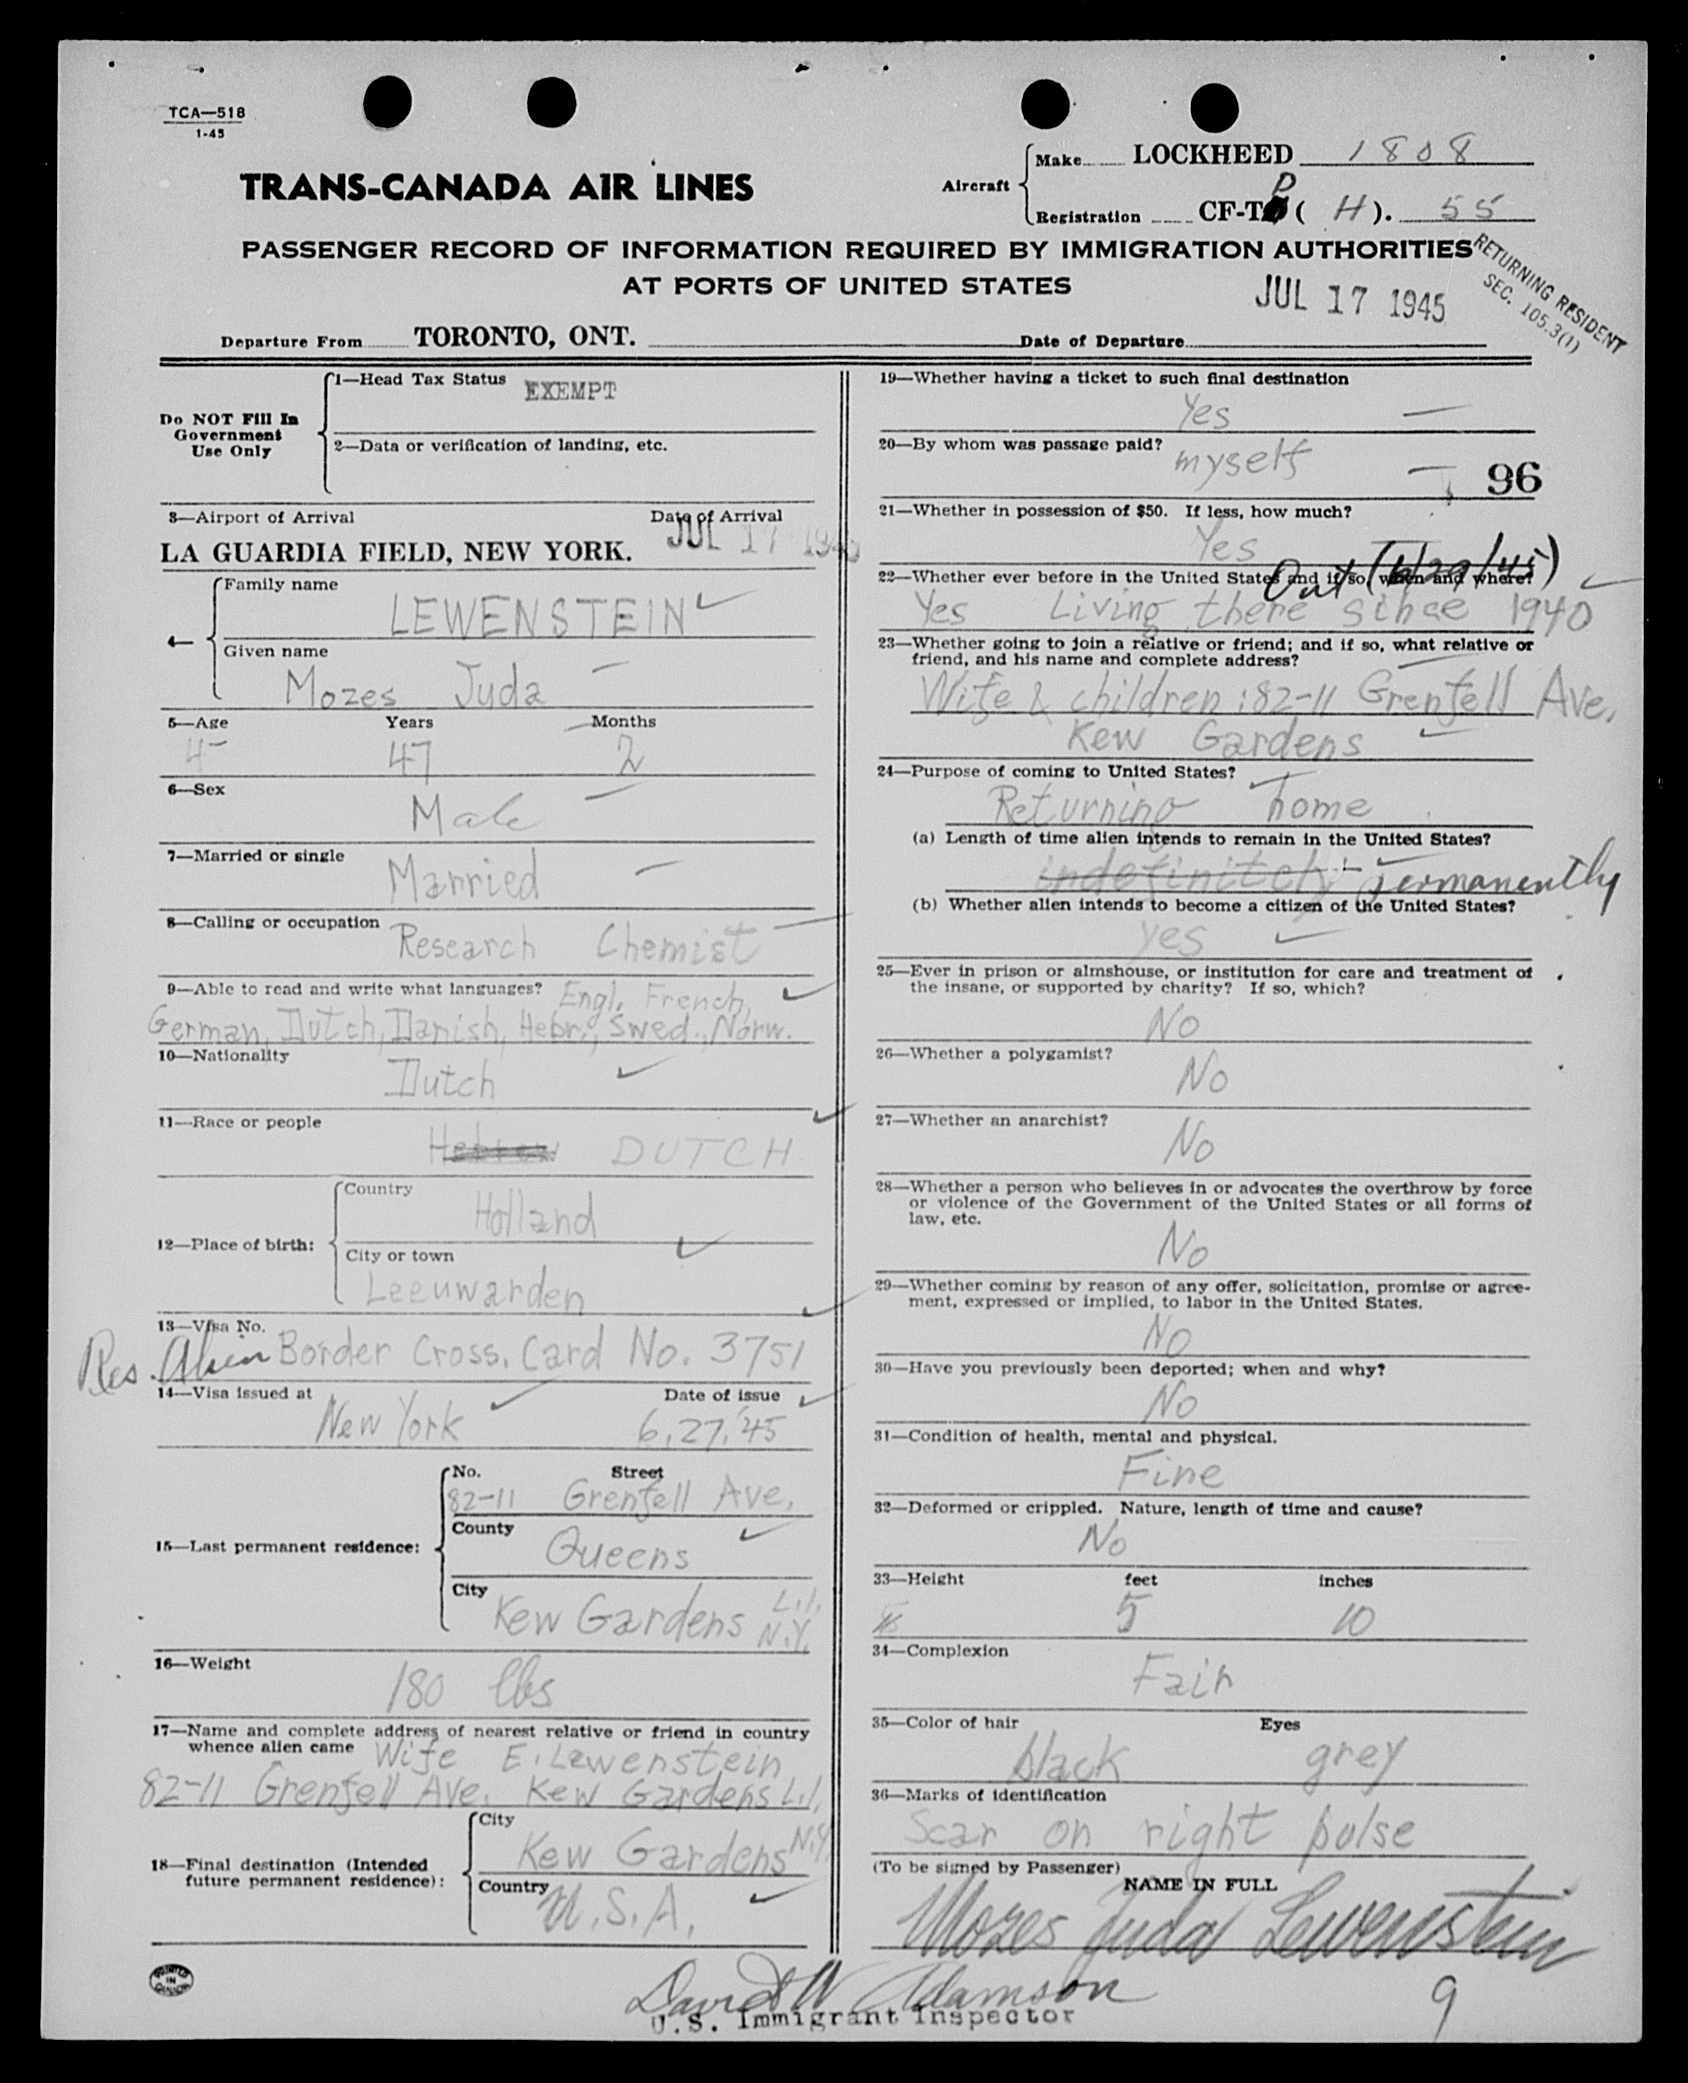 TCA—518
1-45
TRANS-CANADA AIR LINES
Aircraft
Make LOCKHEED 1808
Registration CF-T ( H ). 55
PASSENGER RECORD OF INFORMATION REQUIRED BY IMMIGRATION AUTHORITIES
AT PORTS OF UNITED STATES
RETURNING RESIDENT
SEC. 105.3(1)
JUL 17 1945
Departure From TORONTO, ONT. Date of Departure
Do NOT Fill In
Government
Use Only
1—Head Tax Status EXEMPT
2—Data or verification of landing, etc.
3—Airport of Arrival Date of Arrival
LA GUARDIA FIELD, NEW YORK. JUL 17 1945
4—
Family name
LEWENSTEIN
Given name
Mozes Juda
5—Age Years Months
47 2
6—Sex
Male
7—Married or single
Married
8—Calling or occupation
Research Chemist
9—Able to read and write what languages? Engl. French,
German, Dutch, Danish, Hebr., Swed., Norw.
10—Nationality
Dutch
11—Race or people
Hebrew DUTCH
12—Place of birth:
Country
Holland
City or town
Leeuwarden
13—Visa No.
Res. Alien Border Cross. Card No. 3751
14—Visa issued at Date of issue
New York 6,27,'45
15—Last permanent residence:
No. Street
82-11 Grenfell Ave.
County
Queens
City
Kew Gardens L.I. N.Y.
16—Weight
180 lbs
17—Name and complete address of nearest relative or friend in country
whence alien came Wife E. Lewenstein
82-11 Grenfell Ave. Kew Gardens L.I. N.Y.
18—Final destination (Intended
future permanent residence):
City
Kew Gardens
Country
U.S.A.
PRINTED IN CANADA
19—Whether having a ticket to such final destination
Yes
20—By whom was passage paid?
myself
96
21—Whether in possession of $50. If less, how much?
Yes
Out (6/29/45)
22—Whether ever before in the United States and if so, when and where?
Yes Living there since 1940
23—Whether going to join a relative or friend; and if so, what relative or
friend, and his name and complete address?
Wife & children: 82-11 Grenfell Ave,
Kew Gardens
24—Purpose of coming to United States?
Returning home
(a) Length of time alien intends to remain in the United States?
indefinitely permanently
(b) Whether alien intends to become a citizen of the United States?
yes
25—Ever in prison or almshouse, or institution for care and treatment of
the insane, or supported by charity? If so, which?
No
26—Whether a polygamist?
No
27—Whether an anarchist?
No
28—Whether a person who believes in or advocates the overthrow by force
or violence of the Government of the United States or all forms of
law, etc.
No
29—Whether coming by reason of any offer, solicitation, promise or agree-
ment, expressed or implied, to labor in the United States.
No
30—Have you previously been deported; when and why?
No
31—Condition of health, mental and physical.
Fine
32—Deformed or crippled. Nature, length of time and cause?
No
33—Height feet inches
5 10
34—Complexion
Fair
35—Color of hair Eyes
black grey
36—Marks of identification
Scar on right pulse
(To be signed by Passenger)
NAME IN FULL
Mozes Juda Lewenstein
David W Adamson
U.S. Immigrant Inspector
9